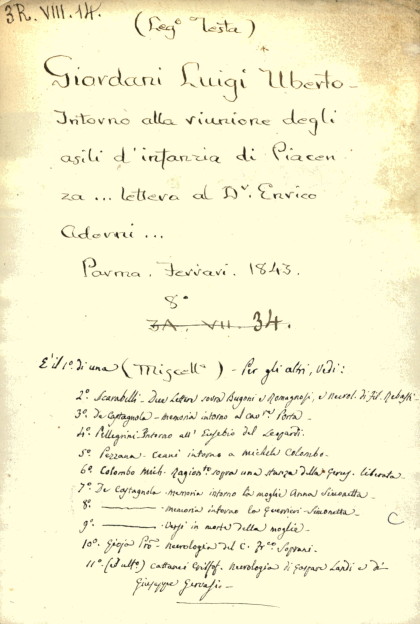 3R. VIII. 14.
(Leg.º Testa)
Giordani Luigi Uberto -
Intorno alla riunione degli
asili d'infanzia di Piacen
za ... lettera al Dr. Enrico
Adorni ...
Parma. Ferrari. 1843.
8º
3A. VII. 34.
È il 1º di una (Miscellª) - Per gli altri, vedi:
2º. Scarabelli - Due Lettere sovra Bugoni e Romagnosi, e necrol. di Fil. Rebassi -
3º. De Castagnola - memoria intorno al cav.re Porta -
4º. Pellegrini - Intorno all' Eusebio del Leopardi.
5º. Pezzana - Cenni intorno a Michele Colombo.
6º. Colombo Mich. Ragion.to sopra una stanza della Gerus. Liberata.
7º. De Castagnola - memoria intorno la moglie Anna Simonetta -
8º. ——— - memoria intorno la Guerrieri-Simonetta -
9º. ——— - Versi in morte della moglie -
10º. Gioja - necrologia del C. Fr.co Soprani.
11º. (ed ultº) Cattanei Cristof. Necrologia di Gaspare Landi e di
Giuseppe Gervasi -
C